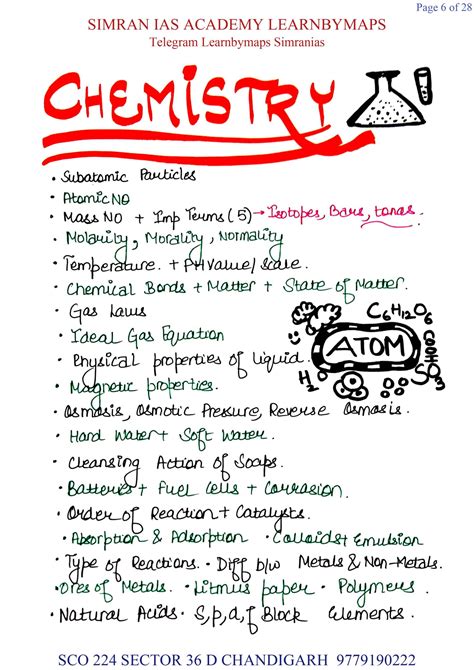 Page 6 of 28
SIMRAN IAS ACADEMY LEARNBYMAPS
Telegram Learnbymaps Simranias
CHEMISTRY
• Subatomic Particles
• Atomic NO
• Mass NO + Imp Terms (5) → Isotopes, Bars, tones.
• Molarity, Morality, Normality
• Temperature. + PH Value/scale.
• Chemical Bonds + Matter + State of Matter.
• Gas Laws
• Ideal Gas Equation
• Physical properties of liquid.
• Magnetic properties.
C6H12O6
ATOM
COOH
SO3
H2O
• Osmosis, Osmotic Pressure, Reverse Osmosis.
• Hard Water + Soft Water.
• Cleansing Action of Soaps.
• Batteries + Fuel Cells + Corrosion.
• Order of Reaction + Catalysts.
• Absorption & Adsorption • Colloids + Emulsion
• Type of Reactions. • Diff b/w Metals & Non-Metals.
• Ores of Metals. • Litmus paper • Polymers.
• Natural Acids. • S, p, d, f Block Elements.
SCO 224 SECTOR 36 D CHANDIGARH 9779190222